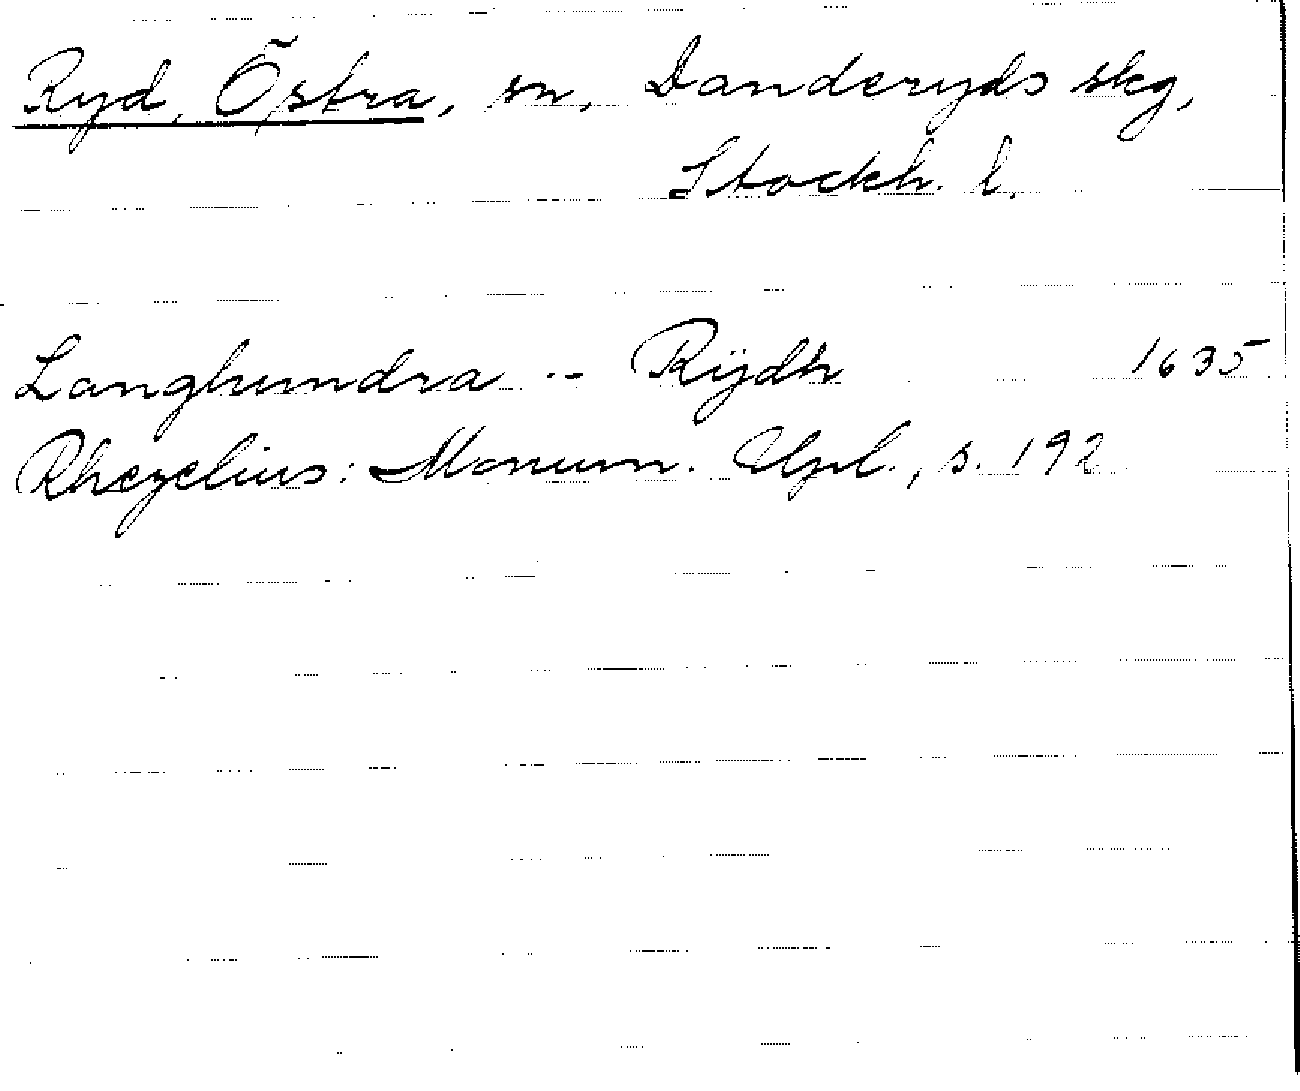 Ryd, Östra, sn, Danderyds skg,
Stockh. l.
Langhundra -- Rÿdh 1635
Rhezelius: Monum. Upl., s. 192